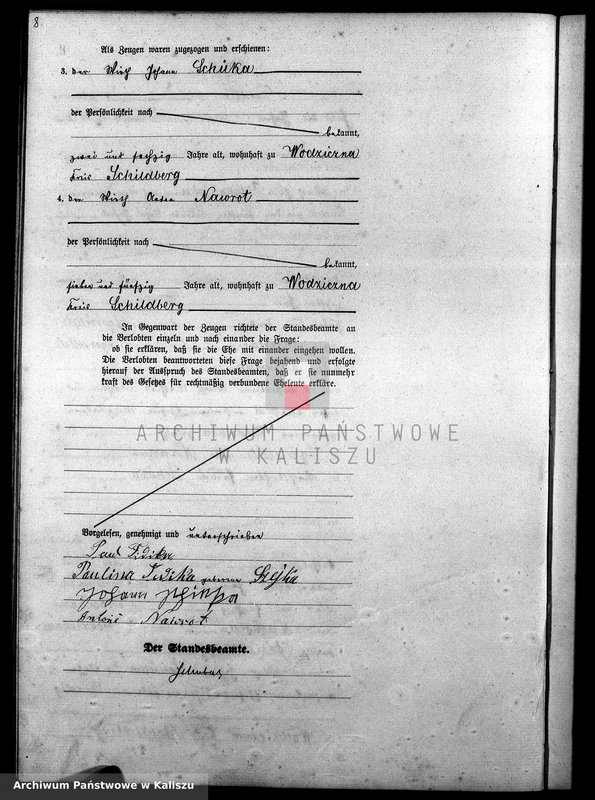 8
Als Zeugen waren zugezogen und erschienen:
3. der Wirth Johann Schüka
der Persönlichkeit nach
bekannt,
zwei und sechzig Jahre alt, wohnhaft zu Wodziczna
Kreis Schildberg
4. der Wirth Anton Nawrot
der Persönlichkeit nach
bekannt,
sieben und fünfzig Jahre alt, wohnhaft zu Wodziczna
Kreis Schildberg
In Gegenwart der Zeugen richtete der Standesbeamte an
die Verlobten einzeln und nach einander die Frage:
ob sie erklären, daß sie die Ehe mit einander eingehen wollen.
Die Verlobten beantworteten diese Frage bejahend und erfolgte
hierauf der Ausspruch des Standesbeamten, daß er sie nunmehr
kraft des Gesetzes für rechtmäßig verbundene Eheleute erkläre.
ARCHIWUM PAŃSTWOWE
W KALISZU
Vorgelesen, genehmigt und unterschrieben
Paul
Paulina geborene
Johann
Antoni Nawrot
Der Standesbeamte.
Archiwum Państwowe w Kaliszu